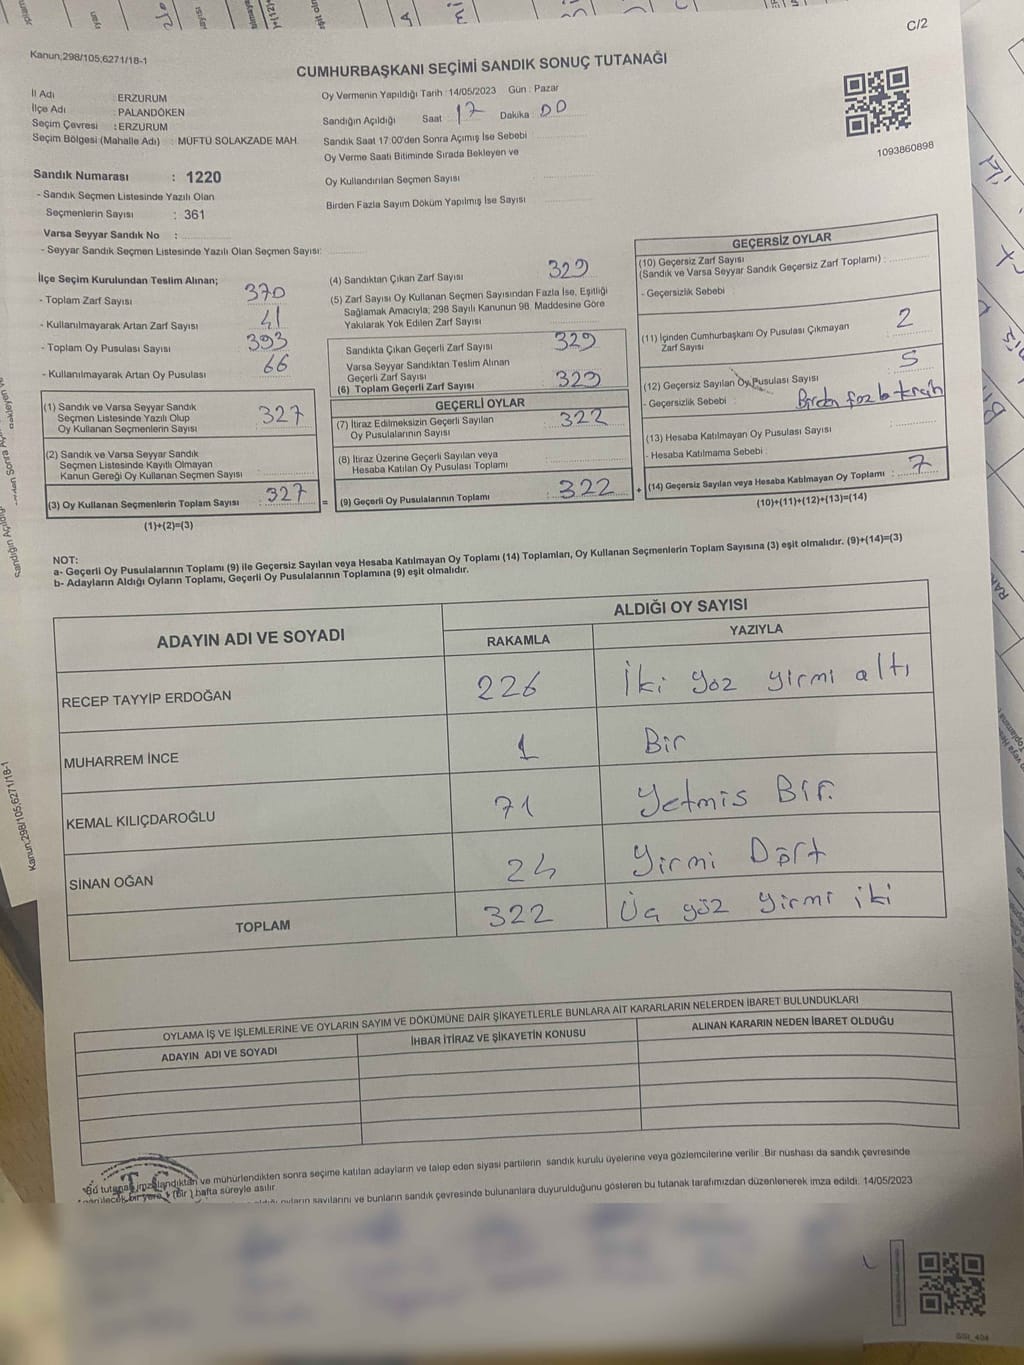 C/2
Kanun;298/105,6271/18-1
CUMHURBAŞKANI SEÇİMİ SANDIK SONUÇ TUTANAĞI
İl Adı : ERZURUM
İlçe Adı : PALANDÖKEN
Seçim Çevresi : ERZURUM
Seçim Bölgesi (Mahalle Adı) : MÜFTÜ SOLAKZADE MAH
Oy Vermenin Yapıldığı Tarih : 14/05/2023 Gün : Pazar
Sandığın Açıldığı Saat 17 Dakika 00
Sandık Saat 17:00'den Sonra Açımış İse Sebebi
Oy Verme Saati Bitiminde Sırada Bekleyen ve
Oy Kullandırılan Seçmen Sayısı
Birden Fazla Sayım Döküm Yapılmış İse Sayısı
1093860898
Sandık Numarası : 1220
- Sandık Seçmen Listesinde Yazılı Olan
Seçmenlerin Sayısı : 361
Varsa Seyyar Sandık No :
- Seyyar Sandık Seçmen Listesinde Yazılı Olan Seçmen Sayısı:
İlçe Seçim Kurulundan Teslim Alınan;
- Toplam Zarf Sayısı 370
- Kullanılmayarak Artan Zarf Sayısı 41
- Toplam Oy Pusulası Sayısı 393
- Kullanılmayarak Artan Oy Pusulası 66
(1) Sandık ve Varsa Seyyar Sandık
Seçmen Listesinde Yazılı Olup
Oy Kullanan Seçmenlerin Sayısı : 327
(2) Sandık ve Varsa Seyyar Sandık
Seçmen Listesinde Kayıtlı Olmayan
Kanun Gereği Oy Kullanan Seçmen Sayısı
(3) Oy Kullanan Seçmenlerin Toplam Sayısı : 327 =
(1)+(2)=(3)
(4) Sandıktan Çıkan Zarf Sayısı 329
(5) Zarf Sayısı Oy Kullanan Seçmen Sayısından Fazla İse, Eşitliği
Sağlamak Amacıyla; 298 Sayılı Kanunun 98. Maddesine Göre
Yakılarak Yok Edilen Zarf Sayısı
Sandıkta Çıkan Geçerli Zarf Sayısı 329
Varsa Seyyar Sandıktan Teslim Alınan
Geçerli Zarf Sayısı
(6) Toplam Geçerli Zarf Sayısı 329
GEÇERLİ OYLAR
(7) İtiraz Edilmeksizin Geçerli Sayılan
Oy Pusulalarının Sayısı : 322
(8) İtiraz Üzerine Geçerli Sayılan veya
Hesaba Katılan Oy Pusulası Toplamı
(9) Geçerli Oy Pusulalarının Toplamı : 322 +
GEÇERSİZ OYLAR
(10) Geçersiz Zarf Sayısı
(Sandık ve Varsa Seyyar Sandık Geçersiz Zarf Toplamı) :
- Geçersizlik Sebebi :
(11) İçinden Cumhurbaşkanı Oy Pusulası Çıkmayan
Zarf Sayısı : 2
(12) Geçersiz Sayılan Oy Pusulası Sayısı : 5
- Geçersizlik Sebebi : Birden fazla tercih
(13) Hesaba Katılmayan Oy Pusulası Sayısı
- Hesaba Katılmama Sebebi :
(14) Geçersiz Sayılan veya Hesaba Katılmayan Oy Toplamı : 7
(10)+(11)+(12)+(13)=(14)
NOT:
a- Geçerli Oy Pusulalarının Toplamı (9) ile Geçersiz Sayılan veya Hesaba Katılmayan Oy Toplamı (14) Toplamları, Oy Kullanan Seçmenlerin Toplam Sayısına (3) eşit olmalıdır. (9)+(14)=(3)
b- Adayların Aldığı Oyların Toplamı, Geçerli Oy Pusulalarının Toplamına (9) eşit olmalıdır.
ADAYIN ADI VE SOYADI
ALDIĞI OY SAYISI
RAKAMLA YAZIYLA
RECEP TAYYİP ERDOĞAN 226 İki yöz yirmi altı
MUHARREM İNCE 1 Bir
KEMAL KILIÇDAROĞLU 71 Yetmis Bir.
SİNAN OĞAN 24 Yirmi Dört
TOPLAM 322 Üç yöz yirmi iki
OYLAMA İŞ VE İŞLEMLERİNE VE OYLARIN SAYIM VE DÖKÜMÜNE DAİR ŞİKAYETLERLE BUNLARA AİT KARARLARIN NELERDEN İBARET BULUNDUKLARI
ADAYIN ADI VE SOYADI İHBAR İTİRAZ VE ŞİKAYETİN KONUSU ALINAN KARARIN NEDEN İBARET OLDUĞU
Bu tutanak imzalandıktan ve mühürlendikten sonra seçime katılan adayların ve talep eden siyasi partilerin sandık kurulu üyelerine veya gözlemcilerine verilir. Bir nüshası da sandık çevresinde
(Bir) hafta süreyle asılır.
oyların sayılarını ve bunların sandık çevresinde bulunanlara duyurulduğunu gösteren bu tutanak tarafımızdan düzenlenerek imza edildi. 14/05/2023
T.C.
Kanun;298/105,6271/18-1